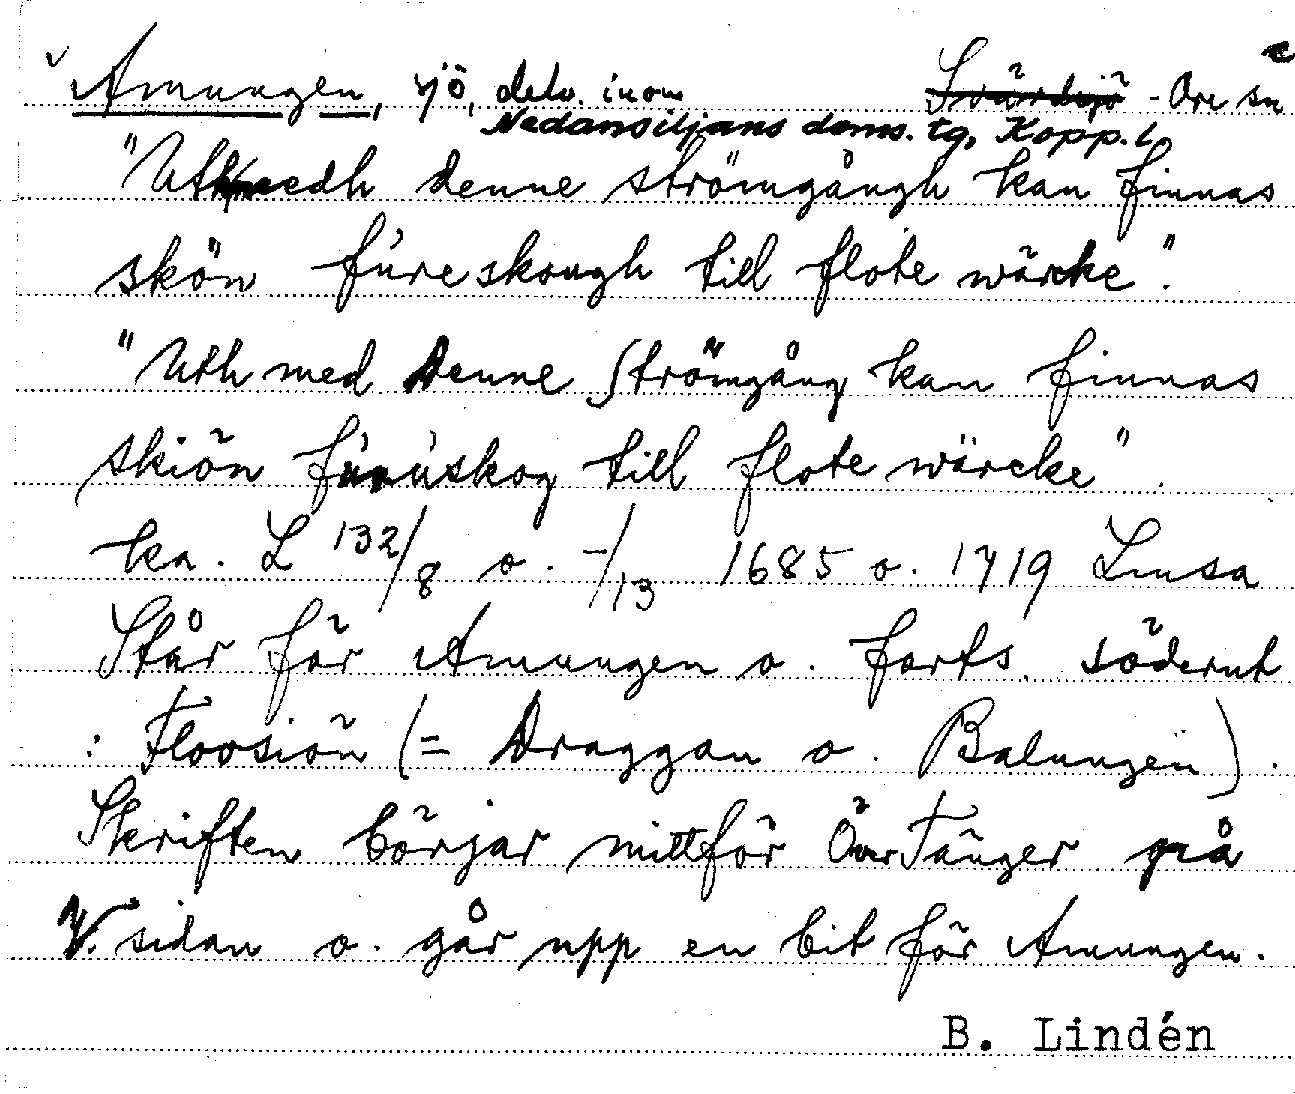 Amungen, sjö, delv. inom Svärdsjö - Ore sn
Nedansiljans doms. tg, Kopp. l.
"Uthmedh denne strömgångh kan finnas
skön fúreskough till flote wärcke".
"Uth med Denne Strömgång kan finnas
skiön furúskog till flote wärcke".
ka. L 132/8 o. -/13 1685 o. 1719 Linsa
Står för Amungen o. forts. söderut
: Floosiön (= Draggan o. Balungen).
Skriften börjar mittför Över Tänger på
V. sidan o. går upp en bit för Amungen.
B. Lindén